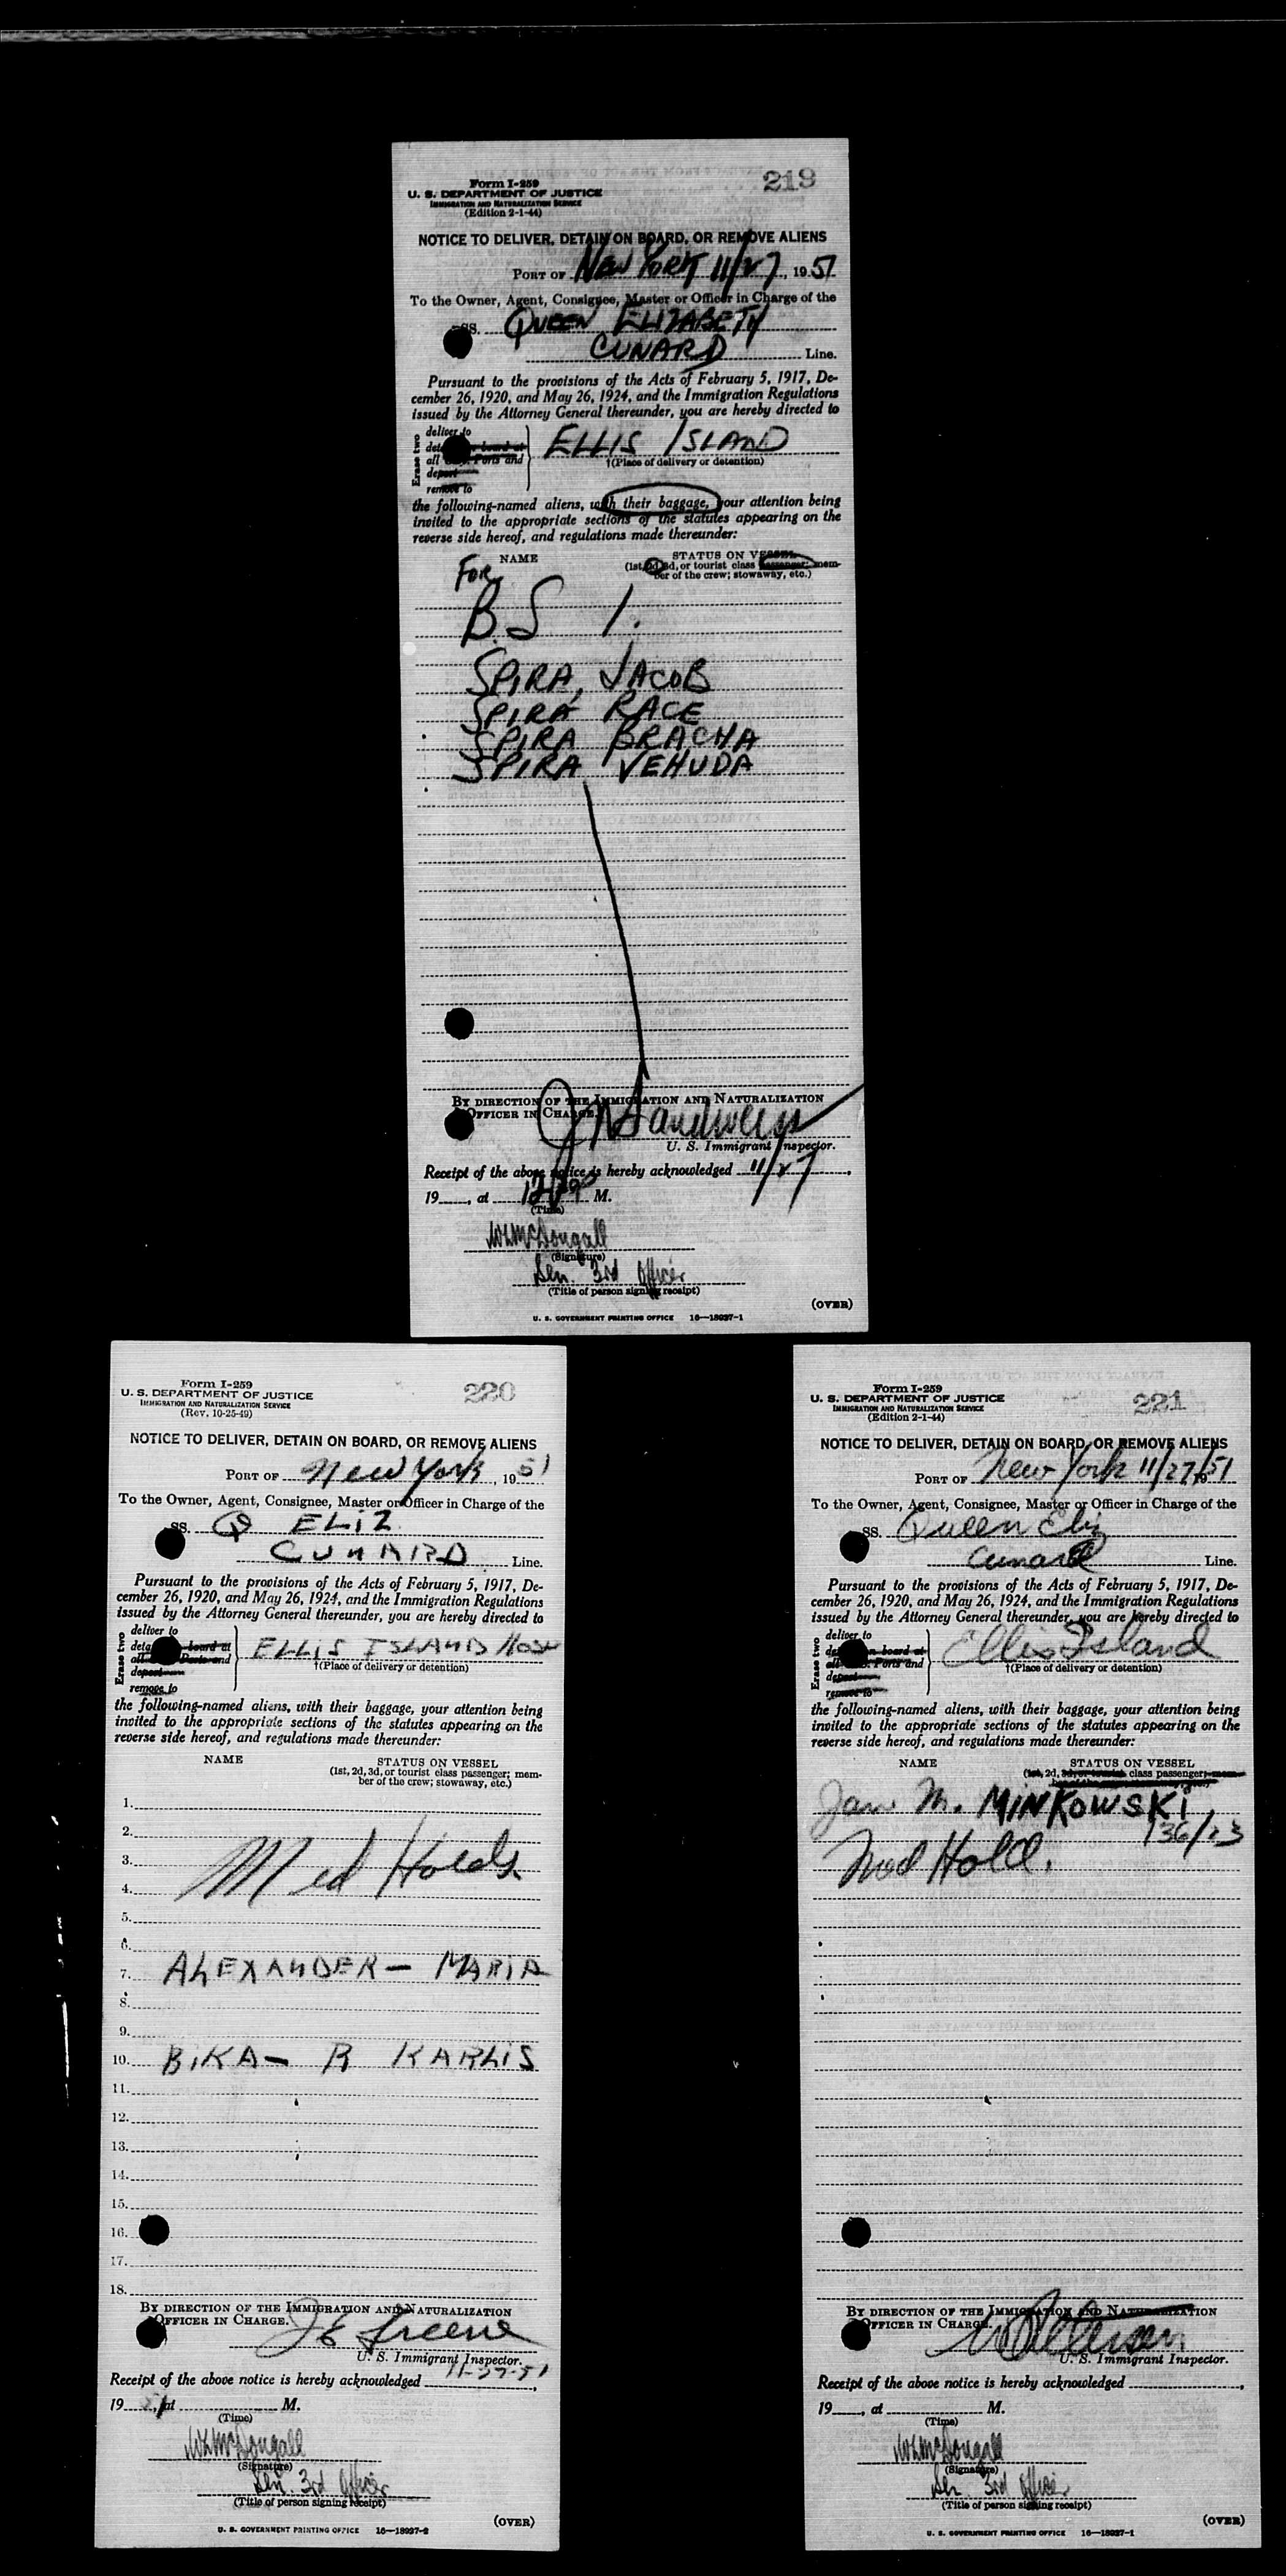 219
Form I-259
U. S. DEPARTMENT OF JUSTICE
IMMIGRATION AND NATURALIZATION SERVICE
(Edition 2-1-44)
NOTICE TO DELIVER, DETAIN ON BOARD, OR REMOVE ALIENS
PORT OF NEW YORK 11/27, 1951
To the Owner, Agent, Consignee, Master or Officer in Charge of the
SS. QUEEN ELIZABETH
CUNARD Line.
Pursuant to the provisions of the Acts of February 5, 1917, De-
cember 26, 1920, and May 26, 1924, and the Immigration Regulations
issued by the Attorney General thereunder, you are hereby directed to
Erase two
deliver to
board at
all Ports and
depart
remove to
ELLIS ISLAND
†(Place of delivery or detention)
the following-named aliens, with their baggage, your attention being
invited to the appropriate sections of the statutes appearing on the
reverse side hereof, and regulations made thereunder:
NAME
STATUS ON VESSEL
(1st, 2d, 3d, or tourist class passenger; mem-
ber of the crew; stowaway, etc.)
FOR
B.S I.
SPIRA, JACOB
SPIRA RACE
SPIRA BRACHA
SPIRA YEHUDA
BY DIRECTION OF THE IMMIGRATION AND NATURALIZATION
OFFICER IN CHARGE.
U. S. Immigrant Inspector.
Receipt of the above notice is hereby acknowledged 11/27,
19___, at M.
(Time)
WLMcDougall
(Signature)
Sen. 3rd Officer
(Title of person signing receipt)
(OVER)
U. S. GOVERNMENT PRINTING OFFICE 16—18927-1
220
Form I-259
U. S. DEPARTMENT OF JUSTICE
IMMIGRATION AND NATURALIZATION SERVICE
(Rev. 10-25-49)
NOTICE TO DELIVER, DETAIN ON BOARD, OR REMOVE ALIENS
PORT OF New York, 1951
To the Owner, Agent, Consignee, Master or Officer in Charge of the
SS. Q ELIZ
CUNARD Line.
Pursuant to the provisions of the Acts of February 5, 1917, De-
cember 26, 1920, and May 26, 1924, and the Immigration Regulations
issued by the Attorney General thereunder, you are hereby directed to
Erase two
deliver to
board at
all Ports and
deport
remove to
ELLIS ISLAND HOSP
†(Place of delivery or detention)
the following-named aliens, with their baggage, your attention being
invited to the appropriate sections of the statutes appearing on the
reverse side hereof, and regulations made thereunder:
NAME
STATUS ON VESSEL
(1st, 2d, 3d, or tourist class passenger; mem-
ber of the crew; stowaway, etc.)
1.
2.
3. Med Holds
4.
5.
6.
7. ALEXANDER - MARIA
8.
9.
10. BIKA - R KARLIS
11.
12.
13.
14.
15.
16.
17.
18.
BY DIRECTION OF THE IMMIGRATION AND NATURALIZATION
OFFICER IN CHARGE.
J E Greene
U. S. Immigrant Inspector.
Receipt of the above notice is hereby acknowledged 11-27-51,
1951, at M.
(Time)
WLMcDougall
(Signature)
Sen. 3rd Officer
(Title of person signing receipt)
(OVER)
U. S. GOVERNMENT PRINTING OFFICE 16—18927-2
221
Form I-259
U. S. DEPARTMENT OF JUSTICE
IMMIGRATION AND NATURALIZATION SERVICE
(Edition 2-1-44)
NOTICE TO DELIVER, DETAIN ON BOARD, OR REMOVE ALIENS
PORT OF New York 11/27/51
To the Owner, Agent, Consignee, Master or Officer in Charge of the
SS. Queen Eliz
Cunard Line.
Pursuant to the provisions of the Acts of February 5, 1917, De-
cember 26, 1920, and May 26, 1924, and the Immigration Regulations
issued by the Attorney General thereunder, you are hereby directed to
Erase two
deliver to
on board at
Ports and
deport
remove to
Ellis Island
†(Place of delivery or detention)
the following-named aliens, with their baggage, your attention being
invited to the appropriate sections of the statutes appearing on the
reverse side hereof, and regulations made thereunder:
NAME
STATUS ON VESSEL
(1st, 2d, 3d, or tourist class passenger; mem-
Jan M. MINKOWSKI
136/23
Med Hold.
BY DIRECTION OF THE IMMIGRATION AND NATURALIZATION
OFFICER IN CHARGE.
U. S. Immigrant Inspector.
Receipt of the above notice is hereby acknowledged ___,
19___, at M.
(Time)
WLMcDougall
(Signature)
Sen 3rd Officer
(Title of person signing receipt)
(OVER)
U. S. GOVERNMENT PRINTING OFFICE 16—18927-1